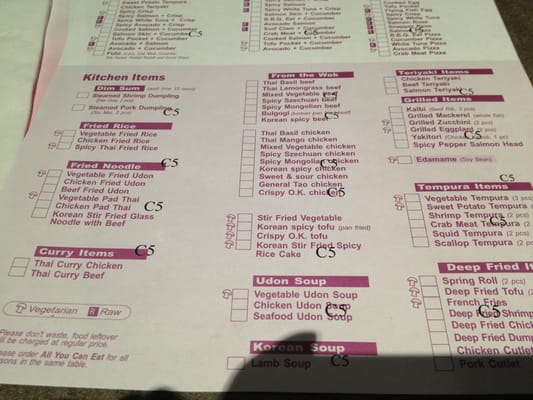 Sweet Potato Tempura
Spicy Crisp
Spicy Salmon + Crisp
Spicy White Tuna + Crisp
Spicy Avocado + Crisp
Cooked Salmon + Cucumber
Salmon Skin + Cucumber
Tofu Pocket + Cucumber
Avocado + Salmon
Avocado + Cucumber
C5
Spicy Salmon
Spicy White Tuna + Crisp
Salmon Skin + Cucumber
B.B.Q. Eel + Cucumber
Avocado Salmon
Surf Clam +
Crab Meat + Cucumber
Cooked Salmon + Cucumber
Tofu Pocket + Cucumber
Avocado + Cucumber
C5
Cooked Egg
Tofu Pocket
Flying Fish Egg
Spicy Crispy
Spicy White Tuna
Spicy Salmon
Salmon Rose
B.B.Q. Eel Pizza
Cucumber Pizza
White Tuna Pizza
Avocado Pizza
Crab Meat Pizza
C5
Kitchen Items
Dim Sum (wait time 15 mins)
Steamed Shrimp Dumpling
Steamed Pork Dumpling
C5
Fried Rice
Vegetable Fried Rice
Chicken Fried Rice
Spicy Thai Fried Rice
C5
Fried Noodle
Vegetable Fried Udon
Chicken Fried Udon
Beef Fried Udon
Vegetable Pad Thai
Chicken Pad Thai C5
Korean Stir Fried Glass
Noodle with Beef
Curry Items C5
Thai Curry Chicken
Thai Curry Beef
Vegetarian R Raw
Please don't waste, food leftover
will be charged at regular price.
Please order All You Can Eat for all
persons in the same table.
From the Wok
Thai Basil beef
Thai Lemongrass beef
Mixed Vegetable beef C5
Spicy Szechuan beef
Spicy Mongolian beef
Bulgogi C5
Korean spicy beef
Thai Basil chicken
Thai Mango chicken
Mixed Vegetable chicken
Spicy Szechuan chicken
Spicy Mongolian chicken C5
Korean spicy chicken
Sweet & sour chicken
General Tao chicken
Crispy O.K. chicken C5
Stir Fried Vegetable
Korean spicy tofu (pan fried)
Crispy O.K. tofu
Korean Stir Fried Spicy
Rice Cake C5
Udon Soup
Vegetable Udon Soup
Chicken Udon Soup C5
Seafood Udon Soup
Korean Soup
Lamb Soup C5
Teriyaki Items
Chicken Teriyaki
Beef Teriyaki
Salmon Teriyaki C5
Grilled Items
Kalbi (Beef Rib, 3 pcs)
Grilled Mackerel (whole fish)
Grilled Zucchini (2 pcs)
Grilled Eggplant (2 pcs)
Yakitori C5
Spicy Pepper Salmon Head
Edamame (Soy Bean)
C5
Tempura Items
Vegetable Tempura (3 pcs)
Sweet Potato Tempura
Shrimp Tempura (2 pcs)
Crab Meat Tempura C5
Squid Tempura (2 pcs)
Scallop Tempura (2 pcs)
Deep Fried
Spring Roll (2 pcs)
Deep Fried Tofu
French Fries
Deep Fried Shrimp C5
Deep Fried
Deep Fried
Chicken Cutlet
Pork Cutlet